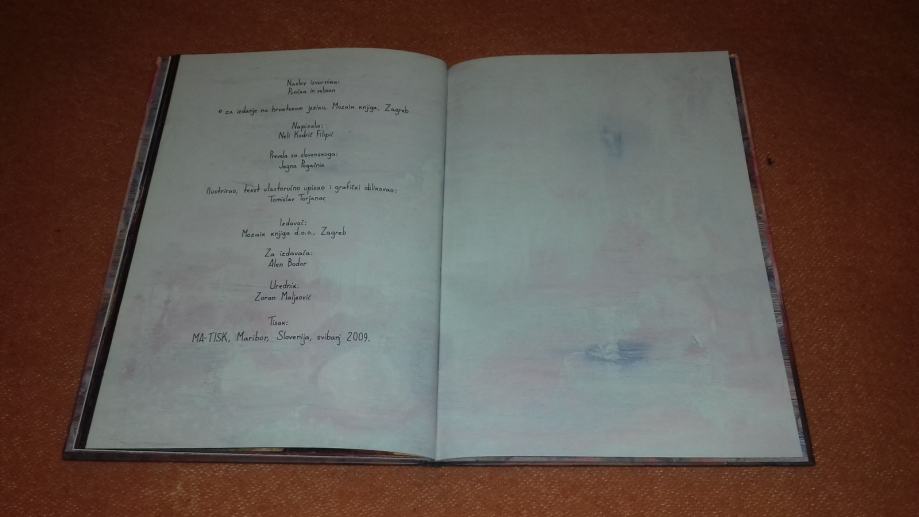 Naslov izvornika:
Punčka in velikan
© za izdanje na hrvatskom jeziku, Mozaik knjiga, Zagreb
Napisala:
Neli Kodrič Filipić
Prevela sa slovenskoga:
Jagna Pogačnik
Ilustrirao, tekst vlastoručno upisao i grafički oblikovao:
Tomislav Torjanac
Izdavač:
Mozaik knjiga d.o.o., Zagreb
Za izdavača:
Alen Bodor
Urednik:
Zoran Maljković
Tisak:
MA-TISK, Maribor, Slovenija, svibanj 2009.